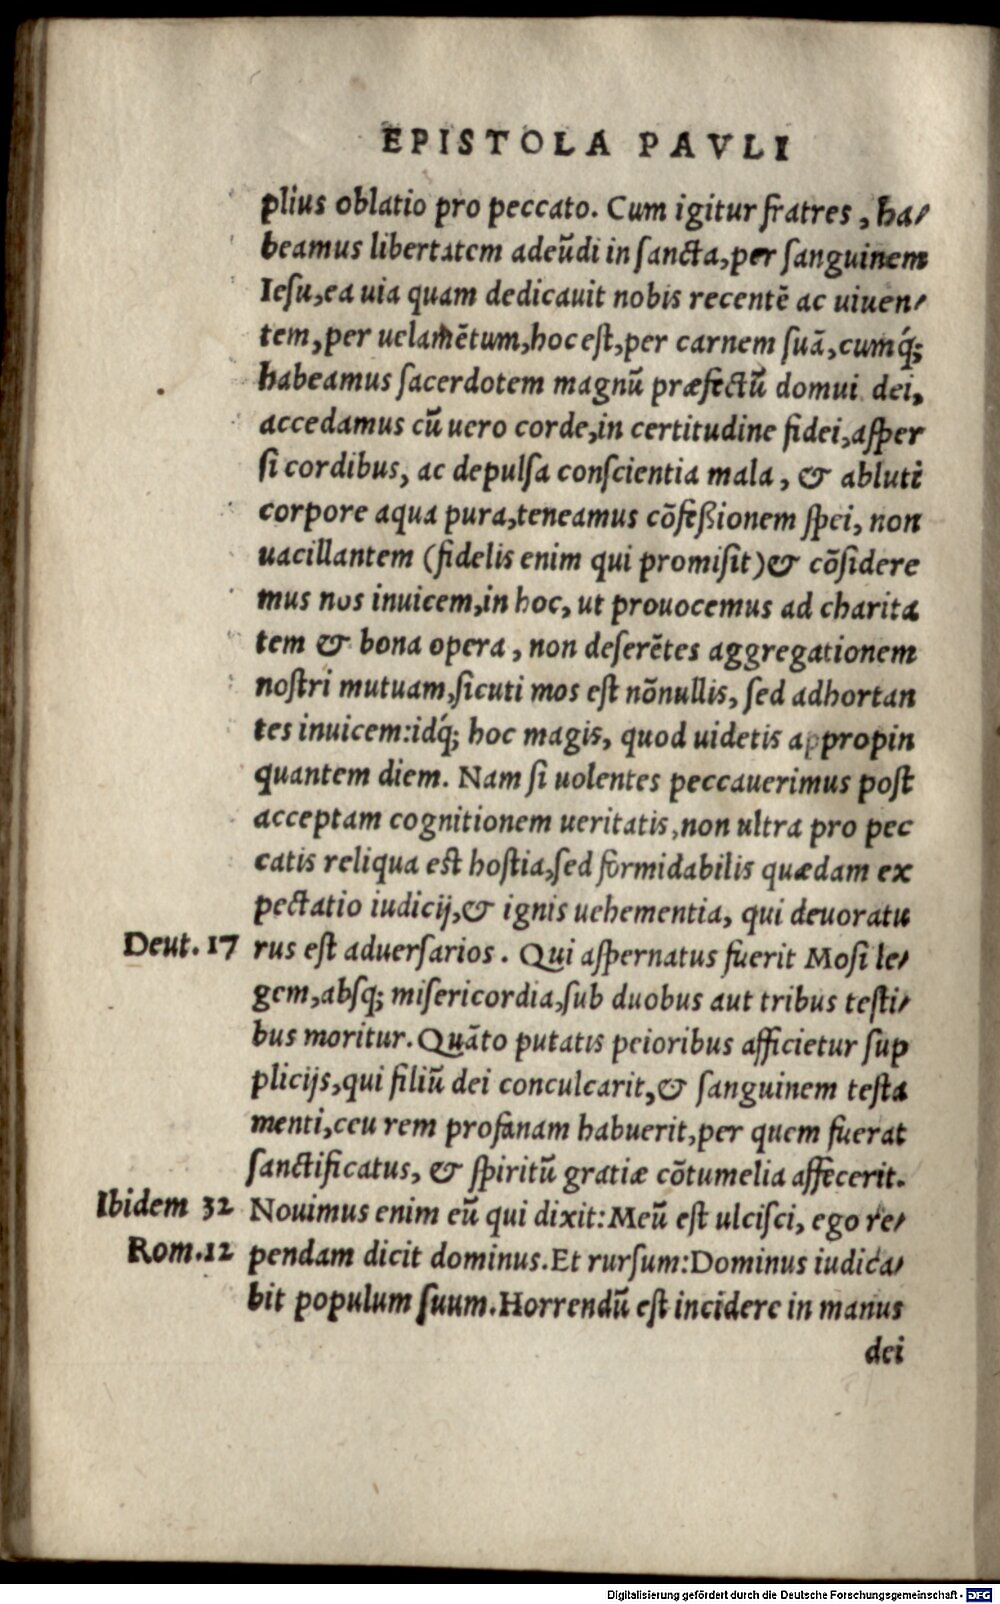 EPISTOLA PAVLI
plius oblatio pro peccato. Cum igitur fratres, ha⸗
beamus libertatem adeũdi in ſancta, per ſanguinem
Ieſu, ea uia quam dedicauit nobis recentẽ ac uiuen⸗
tem, per uelamẽtum, hoc eſt, per carnem ſuã, cumq́;
habeamus ſacerdotem magnũ præfectũ domui dei,
accedamus cũ uero corde, in certitudine fidei, aſper
ſi cordibus, ac depulſa conſcientia mala, & abluti
corpore aqua pura, teneamus cõfeßionem ſpei, non
uacillantem (fidelis enim qui promiſit) & cõſidere
mus nos inuicem, in hoc, ut prouocemus ad charita
tem & bona opera, non deſerẽtes aggregationem
noſtri mutuam, ſicuti mos eſt nõnullis, ſed adhortan
tes inuicem: idq́; hoc magis, quod uidetis appropin
quantem diem. Nam ſi uolentes peccauerimus poſt
acceptam cognitionem ueritatis, non ultra pro pec
catis reliqua eſt hoſtia, ſed formidabilis quædam ex
pectatio iudicij, & ignis uehementia, qui deuoratu
Deut. 17 rus eſt aduerſarios. Qui aſpernatus fuerit Moſi le⸗
gem, abſq; miſericordia, ſub duobus aut tribus teſti⸗
bus moritur. Quãto putatis peioribus afficietur ſup
plicijs, qui filiũ dei conculcarit, & ſanguinem teſta
menti, ceu rem profanam habuerit, per quem fuerat
ſanctificatus, & ſpiritũ gratiæ cõtumelia affecerit.
Ibidem 32 Nouimus enim eũ qui dixit: Meũ eſt ulciſci, ego re⸗
Rom. 12 pendam dicit dominus. Et rurſum: Dominus iudica⸗
bit populum ſuum. Horrendũ eſt incidere in manus
dei
Digitalisierung gefördert durch die Deutsche Forschungsgemeinschaft - DFG